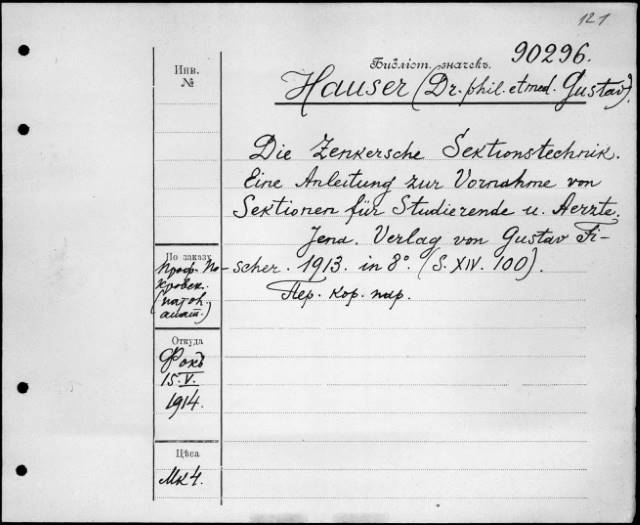 121
Библіот. значекъ. 90296.
Инв.
№
Hauser (Dr. phil. et med. Gustav).
Die Zenkersche Sektionstechnik.
Eine Anleitung zur Vornahme von
Sektionen für Studierende u. Aerzte.
Jena. Verlag von Gustav Fi-
scher. 1913. in 8° (S. XIV. 100).
Пер. кор. пар.
По заказу
Проф. По-
кровск.
(патол.
анат.)
Откуда
Фокъ
15.V.
1914.
Цѣна
Мк 4.